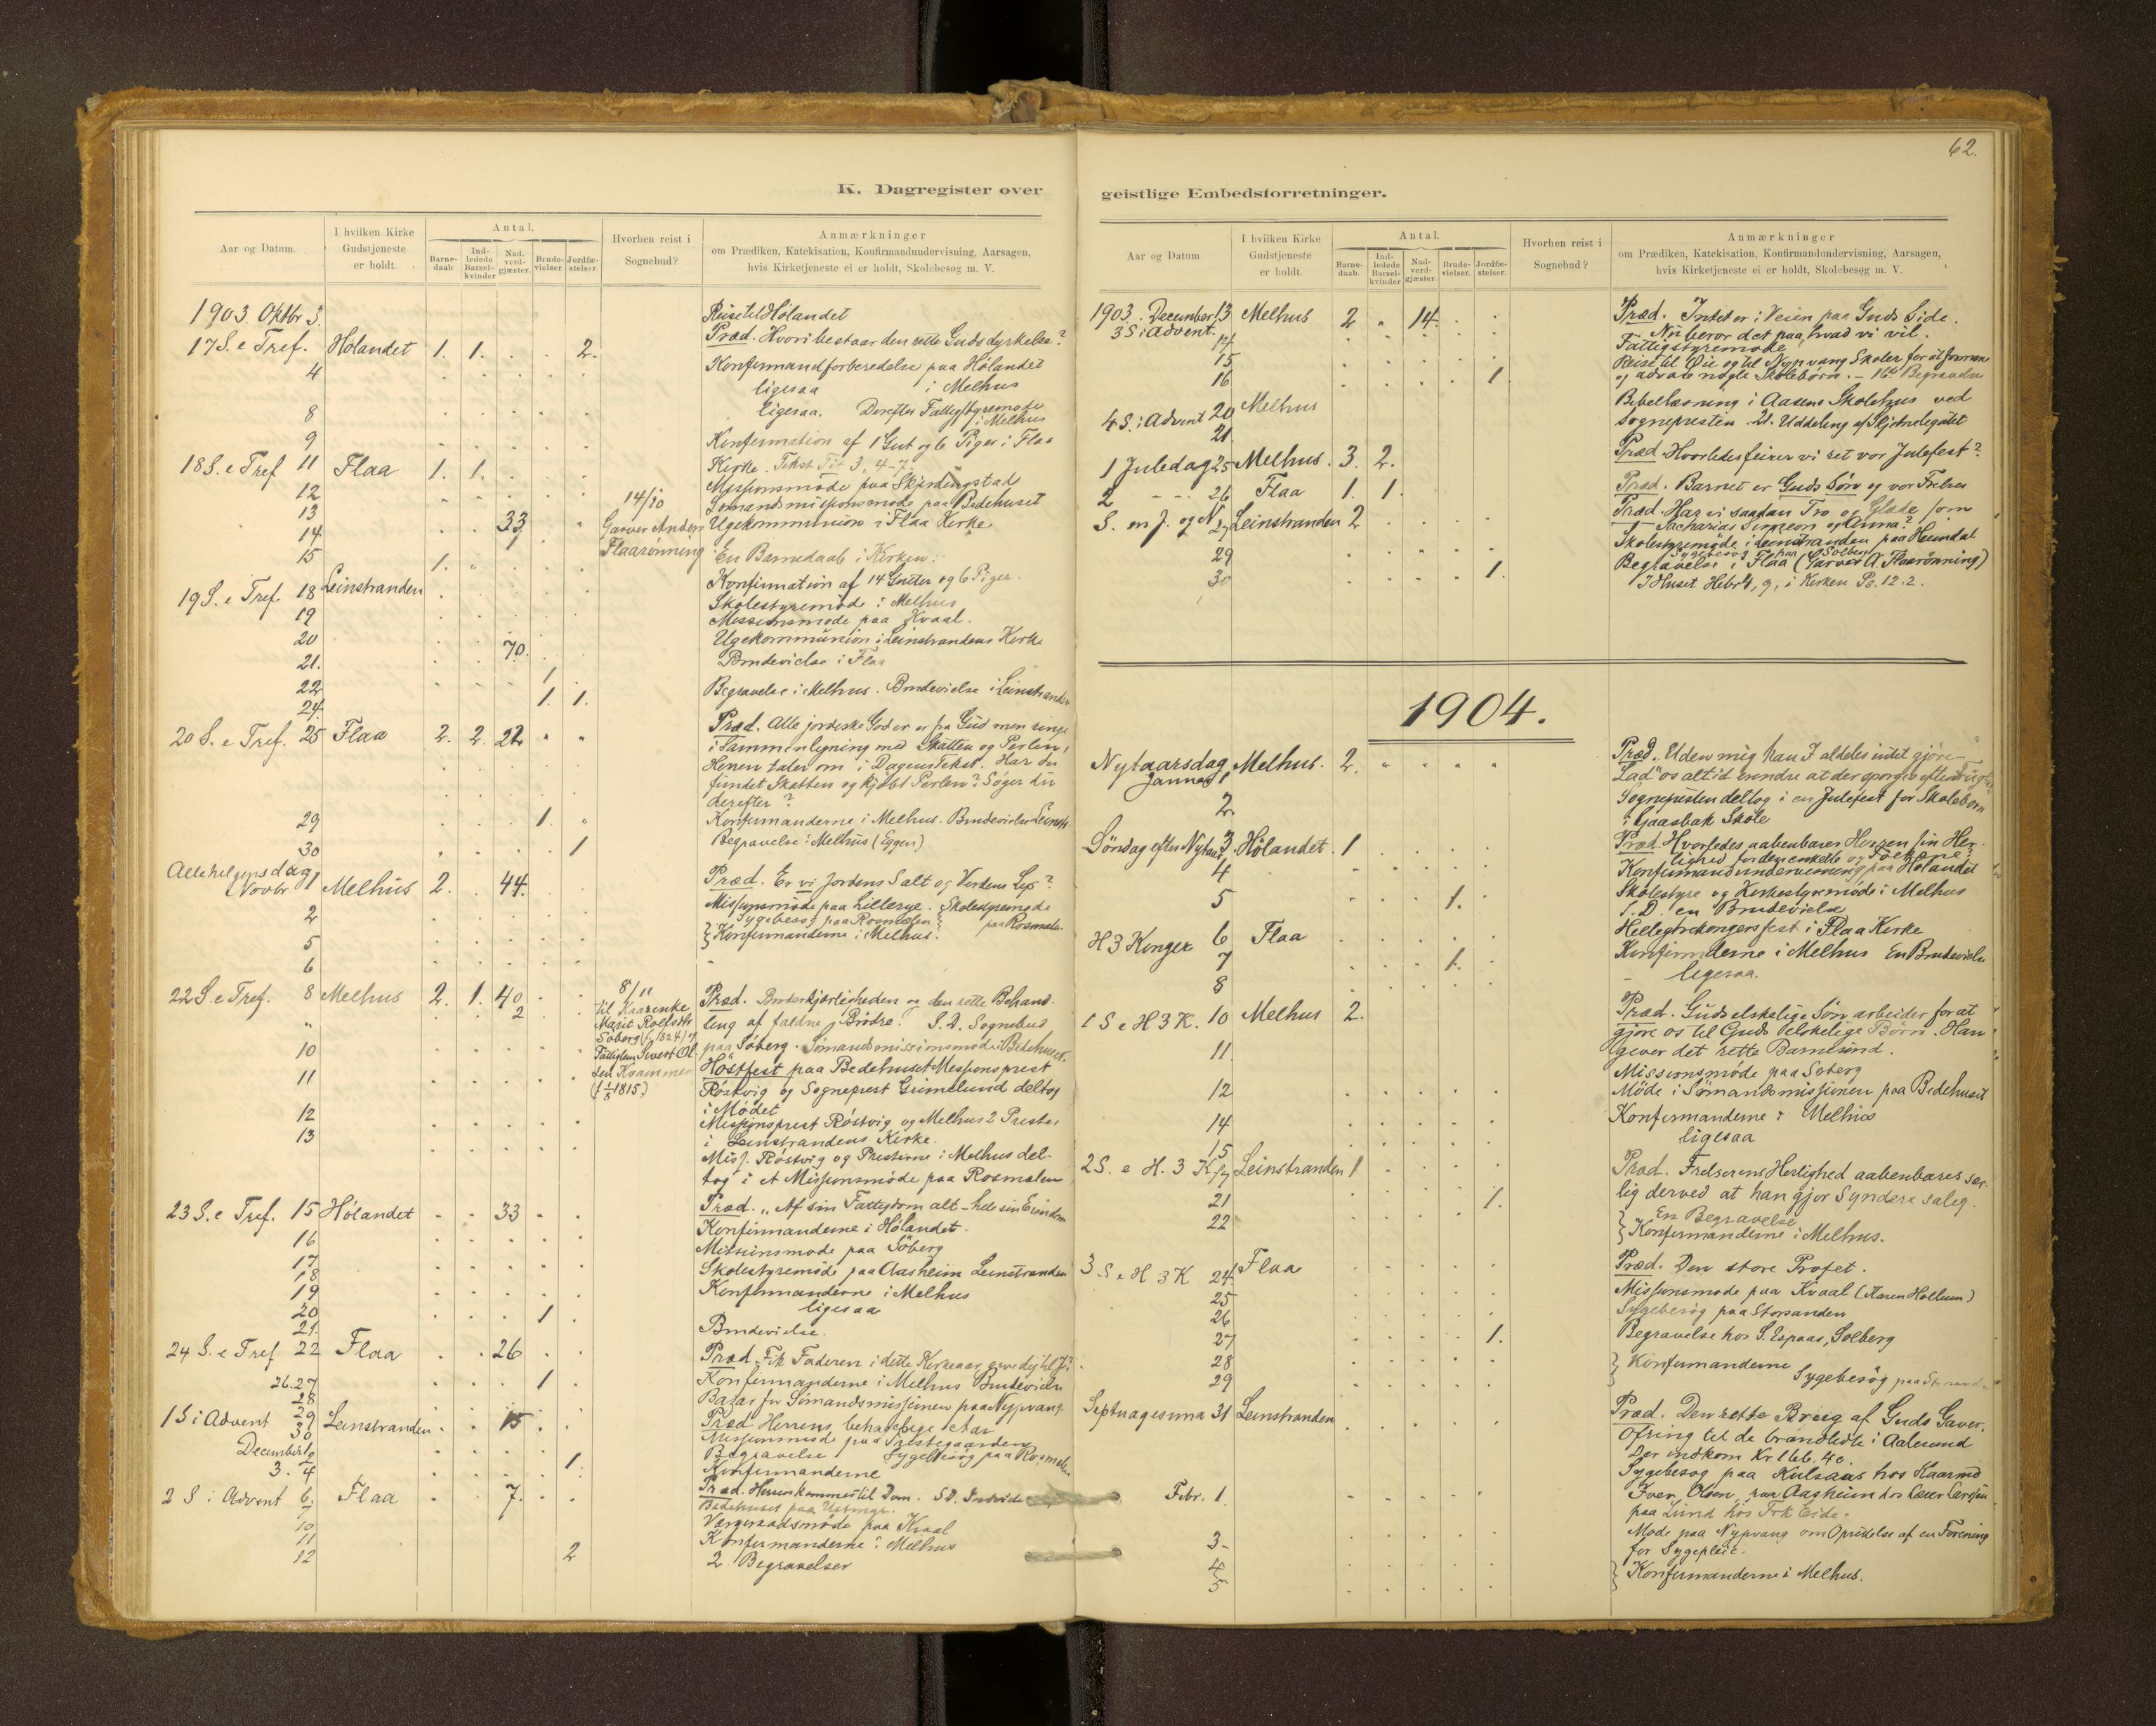 K. Dagregister over
Aar og Datum.
I hvilken Kirke Gudstjeneste er holdt.
Antal.
Barne-daab
Ind-ledede Barsel-kvinder
Nad-verd-gjæster.
Brude-vielser
Jordfæ-stelser.
Hvorhen reist i Sognebud?
Anmærkninger
om Prædiken, Katekisation, Konfirmandundervisning, Aarsagen,
hvis Kirketjeneste ei er holdt, Skolebesøg m. V.
1903. Oktbr 3. Reise til Hølandet
17 S. e Tref. 4 Hølandet 1. 1. 2. Præd. Hvori bestaar den rette Guds dyrkelse?
Konfirmandforberedelse paa Hølandet
ligesaa i Melhus
8 ligesaa. Derefter Fattigstyremøde i Melhus
9 Konfirmation af 1 Gut og 6 Piger i Flaa
18 S. e Tref 11 Flaa 1. 1. Kirke. Tekst Tit 3, 4-7.
12 Missionsmøde paa Skjerdingstad
13 14/10 Sømandsmissionsmøde paa Bedehuset
14 33 Garver Anders Flaarønning Ugekommunion i Flaa Kirke
15 1. En Barnedaab i Kirken.
19 S. e Tref. 18 Leinstranden Konfirmation af 14 Gutter og 6 Piger.
19 Skolestyremøde i Melhus
20 Missionsmøde paa Kvaal.
21. 70. Ugekommunion i Leinstrandens Kirke
22 1 Brudevielse i Flaa
24. 1. 1. Begravelse i Melhus. Brudevielse i Leinstranden
20 S. e Tref. 25 Flaa 2. 2. 22 Præd. Alle jordiske Goder er fra Gud men ringe
i Sammenligning med Skatten og Perlen,
Herren taler om i Dagens Tekst. Har du
fundet Skatten og kjøbt Perlen? Søger du
derefter?
29 1. Konfirmanderne i Melhus. Brudevielse Leinstr.
30 1 Begravelse i Melhus (Eggen)
Allehelgensdag
Novbr 1 Melhus 2. 44. Præd. Er vi Jordens Salt og Verdens Lys?
2 Missionsmøde paa Lillerye. Skolestyremøde
5 Sygebesøg paa Rosmælen paa Rosmæle.
6 Konfirmanderne i Melhus.
22 S. e Tref. 8 Melhus 2. 1. 40 8/11 Præd. Broderkjærligheden og den rette Behand-
" 2 til Kaarenke Marit Rolfsdtr Søberg ling af faldne Brødre. S. D. Sognebud
10 Fattiglem Sivert Ol- paa Søberg. Sømandsmissionsmøde i Bedehuset.
11 sen Kvammen Høstfest paa Bedehuset Missionsprest
(f 1/8 1815) Røstvig og Sogneprest Grimelund deltog
i Mødet
12 Missionsprest Røstvig og Melhus 2 Prester
13 i Leinstrandens Kirke.
Miss. Røstvig og Presterne i Melhus del-
tog i et Missionsmøde paa Rosmælen
23 S. e Tref. 15 Hølandet 33 Præd. „Af sin Fattigdom alt – hele sin Eiendom
16 Konfirmanderne i Hølandet.
17 Missionsmøde paa Søberg
18 Skolestyremøde paa Aasheim Leinstranden
19 Konfirmanderne i Melhus
20 ligesaa
21. 1 Brudevielse.
24 S. e Tref 22 Flaa 26 Præd. Fik Faderen i dette Kirkeaar
26.27 1 Konfirmanderne i Melhus Brudevielse
28 Bazar for Sømandsmissionen paa Nypvang.
1 S i Advent 29 Leinstranden 15 Præd. Herrens behagelige Aar
30 Missionsmøde paa Prestegaarden
December 1 2 1. Begravelse Sygebesøg paa Rosmælen
3. 4 Konfirmanderne
2 S. i Advent 6. Flaa 7. Præd. Herren kommer til Dom. S. D.
7 Bedehuset paa
10 Værgeraadsmøde paa Kvaal
11 Konfirmanderne i Melhus
12 2 2 Begravelser
62.
geistlige Embedsforretninger.
Aar og Datum.
I hvilken Kirke Gudstjeneste er holdt.
Antal.
Barne-daab.
Ind-ledede Barsel-kvinder
Nad-verd-gjæster.
Brude-vielser.
Jordfæ-stelser.
Hvorhen reist i Sognebud?
Anmærkninger
om Prædiken, Katekisation, Konfirmandundervisning, Aarsagen,
hvis Kirketjeneste ei er holdt, Skolebesøg m. V.
1903. December 13 Melhus 2 14. Præd. Intet er i Veien paa Guds Side.
3 S i Advent. Nu beror det paa, hvad vi vil.
14 Fattigstyremøde
15 Reise til Øie og til Nypvang Skoler for at formane
16 1. og advare nogle Skolebørn. – 16de Begravelse
4 S. i Advent 20 Melhus Bibellæsning i Aasens Skolehus ved
21. Sognepresten. 21. Uddeling af legatet
1 Juledag 25 Melhus. 3. 2. Præd. Hvorledes feirer vi ret vor Julefest?
2 – – 26 Flaa 1. 1. Præd. Barnet er Guds Søn og vor Frelser
S. m J. og N 27 Leinstranden 2 Præd. Har vi saadan Tro og Glæde som
Zacharias Simeon og Anna?
29 Skolestyremøde i Leinstranden paa Heimdal
Sygebesøg paa Solberg
30 1. Begravelse i Flaa (Garver A. Flaarønning)
I Huset Hebr 4, 9, i Kirken Ps. 12. 2.
1904.
Nytaarsdag Januar 1 Melhus. 2. Præd. Uden mig kan I aldeles intet gjøre –
Lad os altid mindre at der spørges efter Frugt
2. Sognepresten deltog i en Julefest for Skolebørn
i Gaasbak Skole
Søndag efter Nytaar 3. Hølandet. 1 Præd. Hvorledes aabenbarer Herren sin Her-
lighed for den enkelte og Folkene?
4 Konfirmandundervisning paa Hølandet
5 1. Skolestyre og Kirkestyremøde i Melhus
S. D. en Brudevielse
H 3 Konger 6 Flaa Helligtrekongersfest i Flaa Kirke
7 1. Konfirmanderne i Melhus En Brudevielse
8 – ligesaa.
1 S e H 3 K. 10 Melhus 2. Præd. Guds elskelige Søn arbeider for at
gjøre os til Guds elskelige Børn. Han
giver det rette Barnesind.
11. Missionsmøde paa Søberg
12 Møde i Sømandsmissionen paa Bedehuset
14 Konfirmanderne i Melhus
15 ligesaa
2 S. e H. 3 K 17 Leinstranden 1 Præd. Frelserens Herlighed aabenbares sær-
lig derved at han gjør Syndere salig.
21 1. En Begravelse
22 Konfirmanderne i Melhus.
3 S e H 3 K 24. Flaa Præd. Den store Profet.
25 Missionsmøde paa Kvaal (Karen Hollum)
26 Sygebesøg paa Storsanden
27 1. Begravelse hos S. Espaas, Solberg
28 Konfirmanderne
29 Sygebesøg paa
Septuagesima 31 Leinstranden Præd. Den rette Brug af Guds Gaver.
Ofring til de brandlidte i Aalesund
Der indkom Kr 166. 40.
Febr. 1. Sygebesøg paa Kulsaas hos Kaarmd
Iver Olsen, paa Aasheim hos
paa Lund hos Frk Eide.
3 – Møde paa Nypvang om Oprettelse af en Forening
for Sygepleie.
4
5 Konfirmanderne i Melhus.